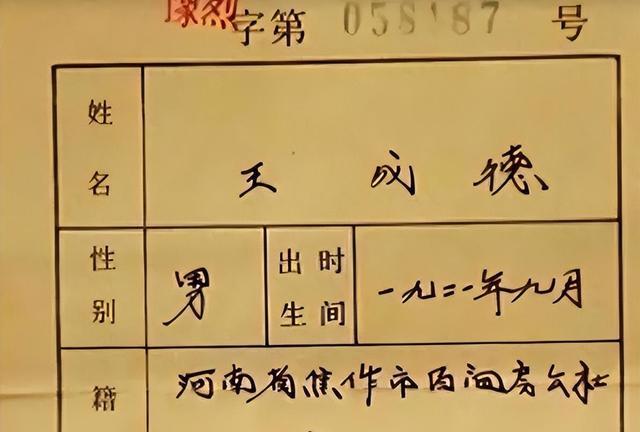 豫烈字第058187号
姓名 王成德
性别 男 出生时间 一九二一年九月
籍 河南省焦作市百间房公社